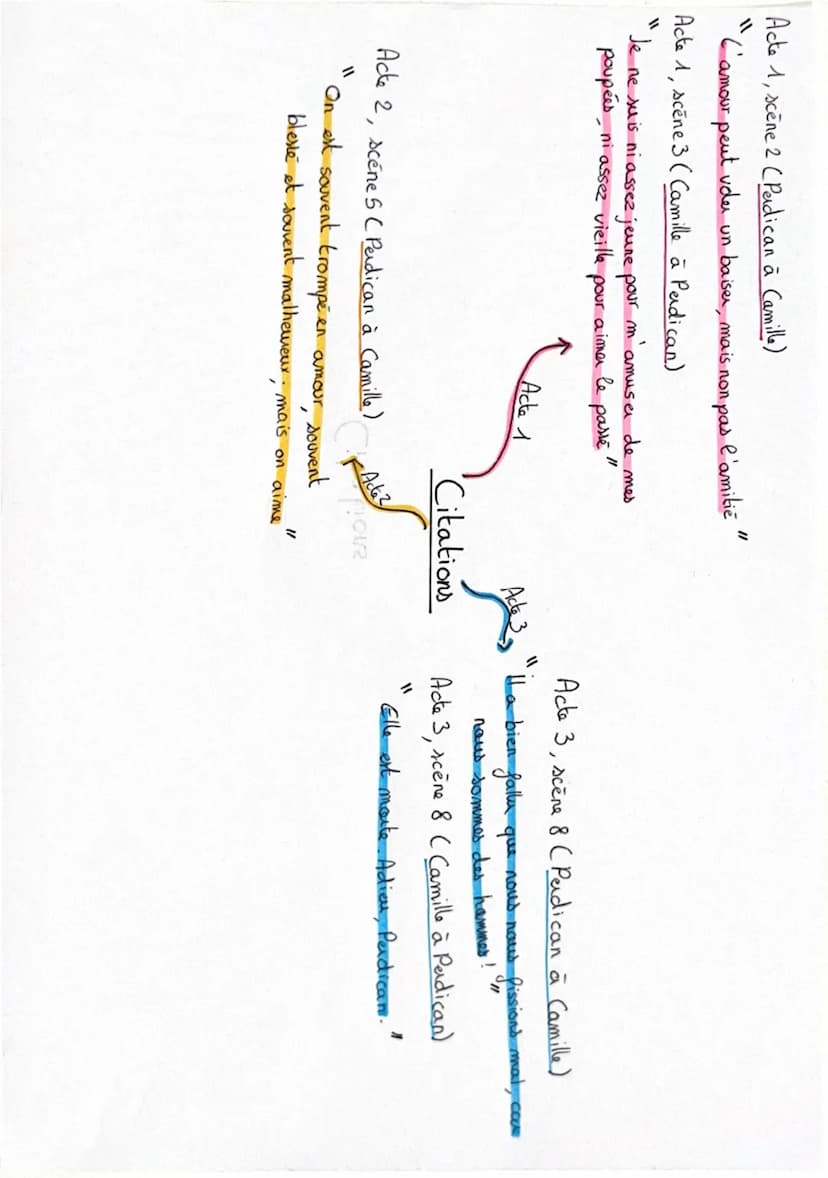 Acte 1, scène 2 (Perdican à Camille)
" L'amour peut voler un baiser, mais non pas l'amitié "
Acte 1, scène 3 (Camille à Perdican)
" Je ne suis ni assez jeune pour m'amuser de mes
poupées, ni assez vieille pour aimer le passé "
Acte 1
Citations
Acte 2
Acte 2, scène 5 (Perdican à Camille)
" On est souvent trompé en amour, souvent
blessé et souvent malheureux. mais on aime "
Acte 3
Acte 3, scène 8 (Perdican à Camille)
" il a bien fallu que nous nous fissions mal, car
nous sommes des hommes! "
Acte 3, scène 8 (Camille à Perdican)
" Elle est morte. Adieu, Perdican. "